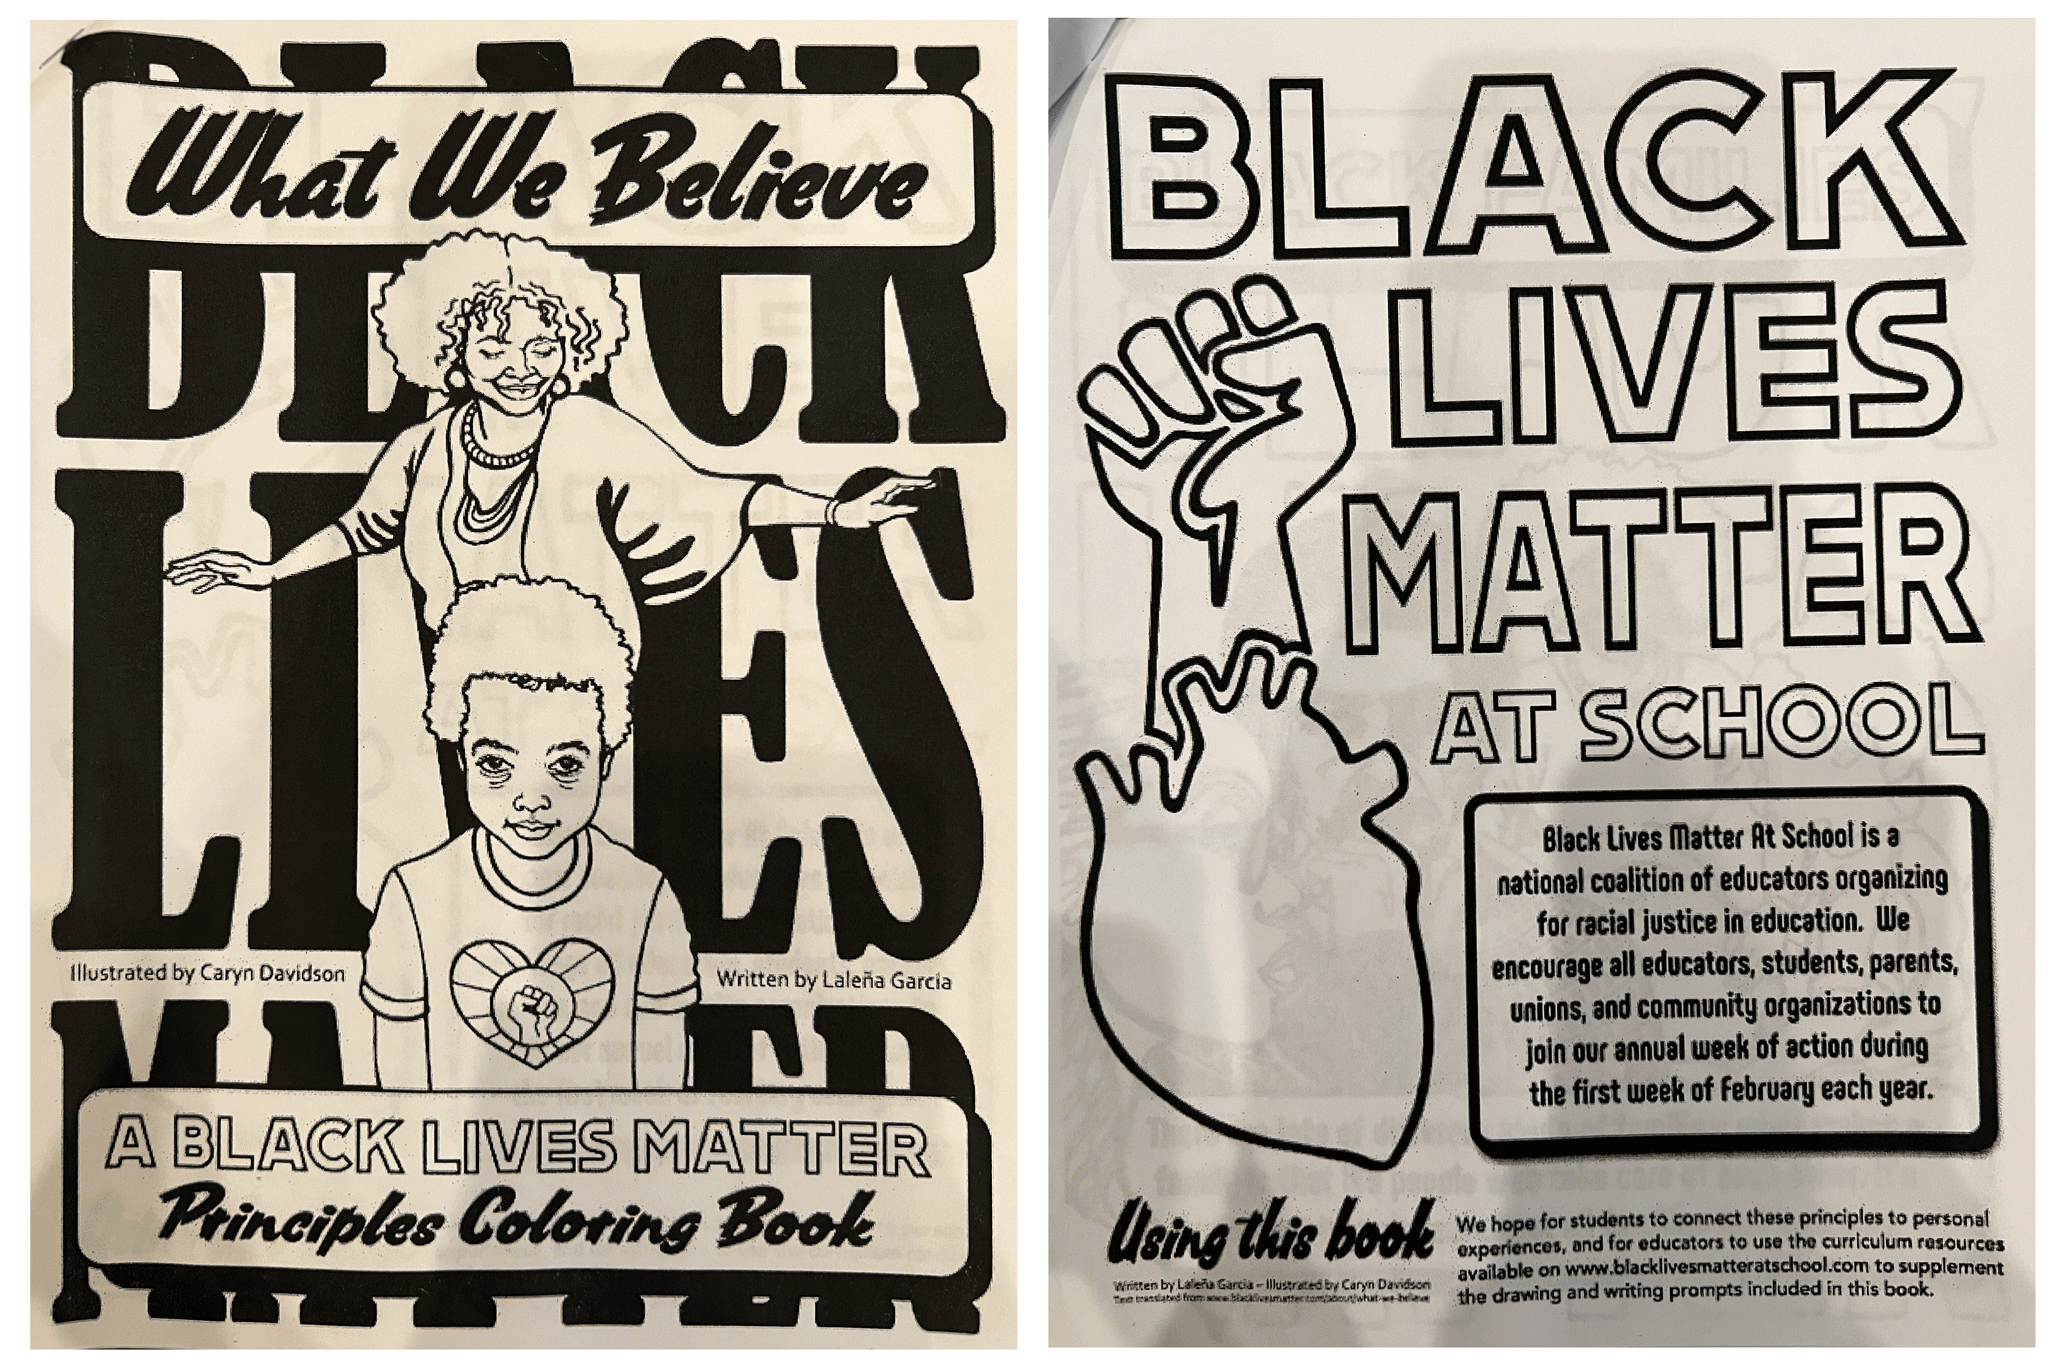 BLACK
What We Believe
LIVES
Illustrated by Caryn Davidson
Written by Laleña Garcia
MATTER
A BLACK LIVES MATTER
Principles Coloring Book
BLACK
LIVES
MATTER
AT SCHOOL
Black Lives Matter At School is a
national coalition of educators organizing
for racial justice in education. We
encourage all educators, students, parents,
unions, and community organizations to
join our annual week of action during
the first week of February each year.
Using this book
Written by Laleña Garcia – Illustrated by Caryn Davidson
Text translated from www.blacklivesmatter.com/about/what-we-believe
We hope for students to connect these principles to personal
experiences, and for educators to use the curriculum resources
available on www.blacklivesmatteratschool.com to supplement
the drawing and writing prompts included in this book.